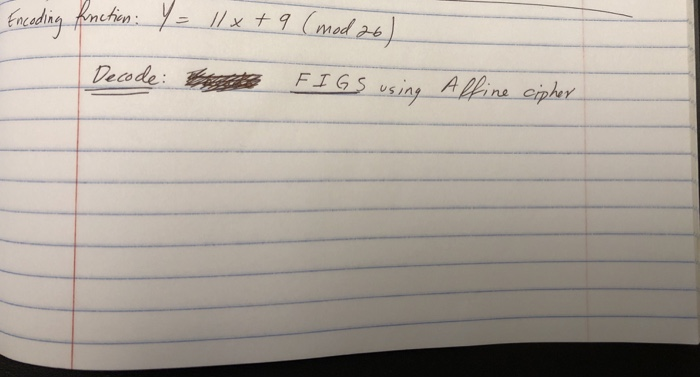 Encoding function: Y = 11x + 9 (mod 26)
Decode: FIGS using Affine cipher